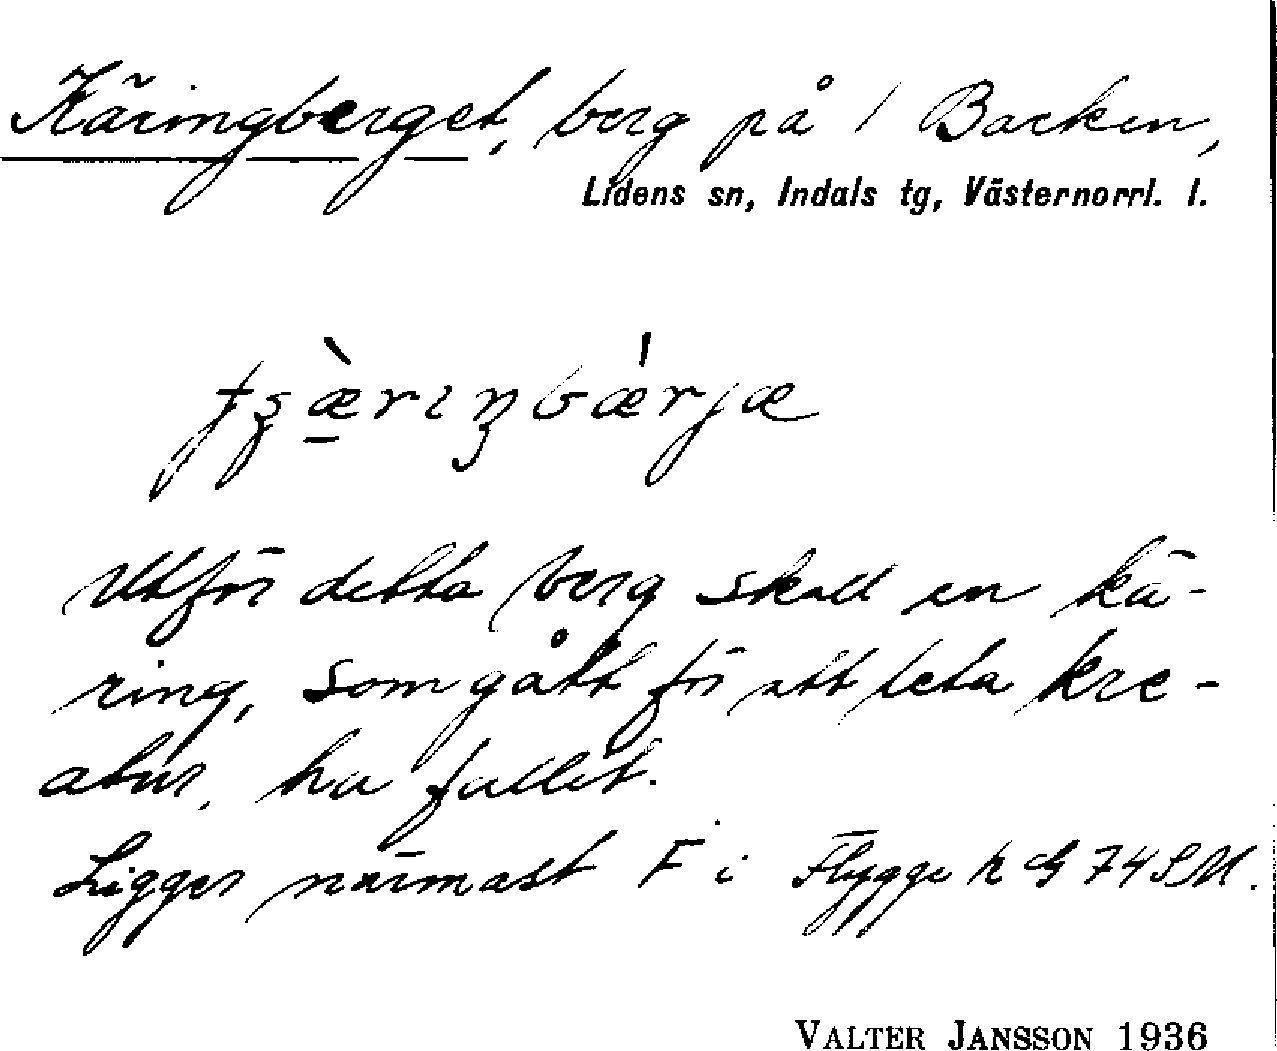 Käringberget, berg på 1 Backen,
Lidens sn, Indals tg, Västernorrl. l.
Utför detta berg skall en kä-
ring, som gått för att leta kre-
atur, ha fallit.
Ligger närmast F i Flygge h G 74 SM.
VALTER JANSSON 1936